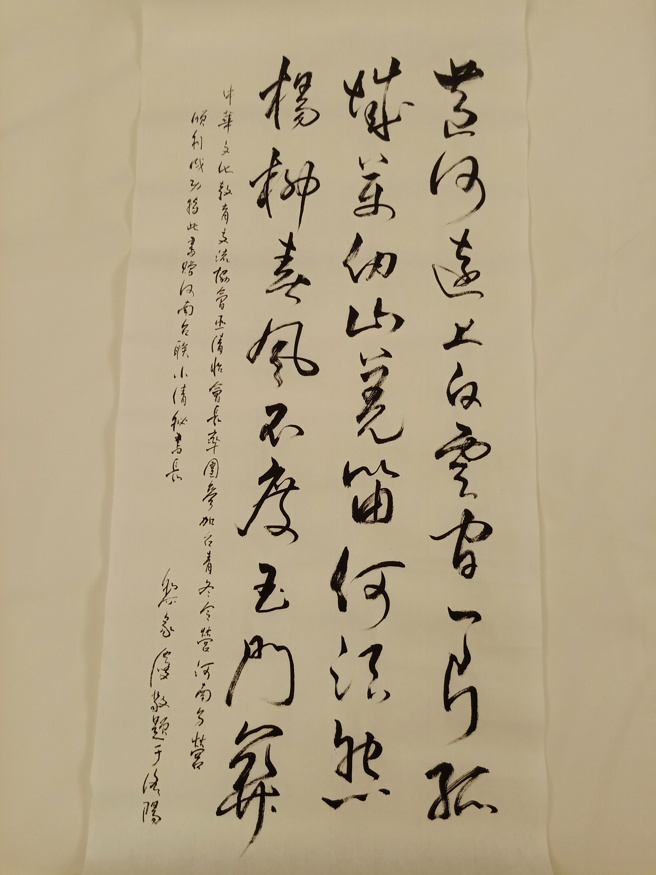 黄河遠上白雲間一片孤
城萬仞山羌笛何須怨
楊柳春風不度玉門關
中華文化教育交流協會巫清怡會長率團參加台青冬令營河南分營
順利成功特此書贈河南台联小清秘書長
敬題于洛陽